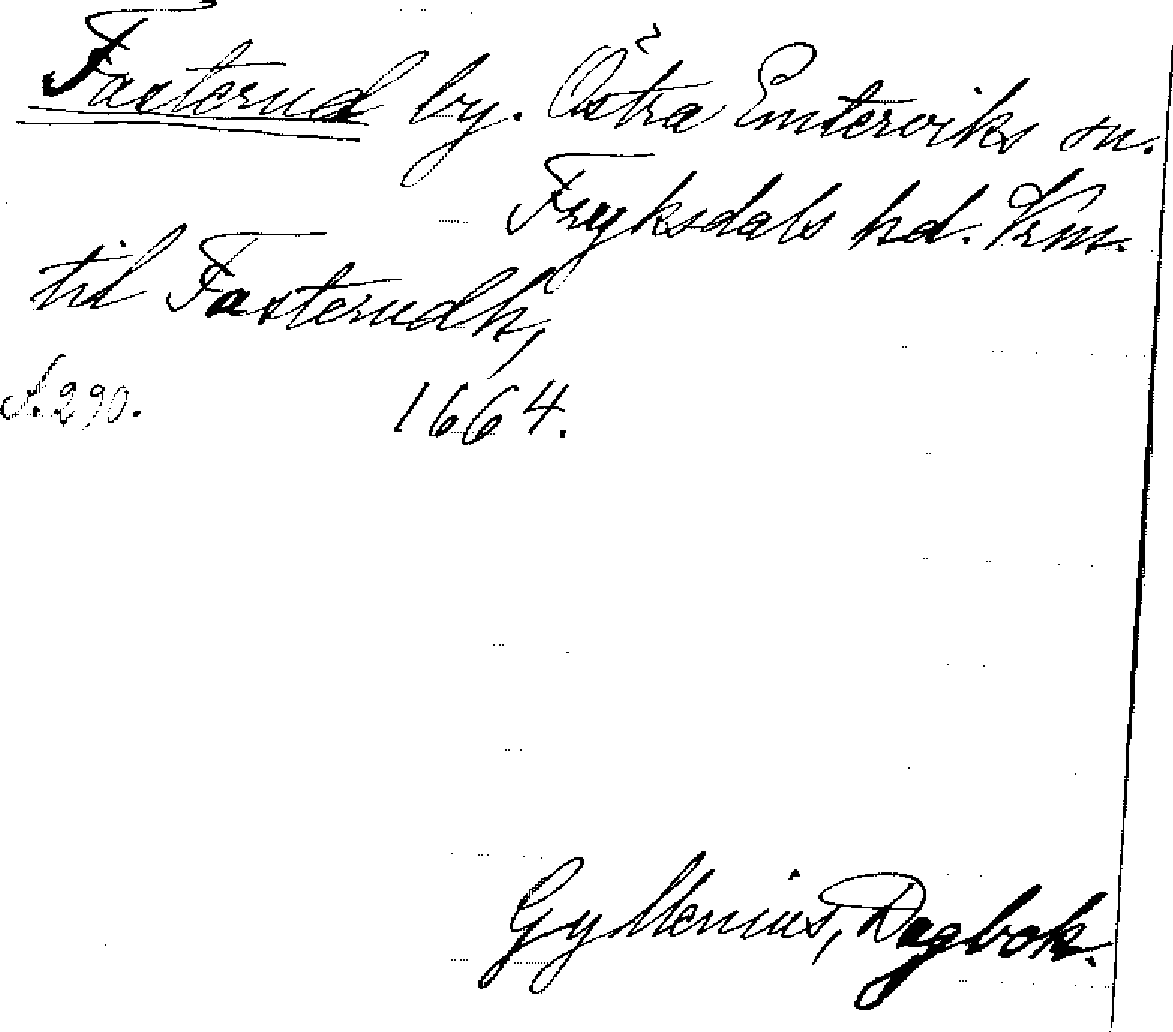 Fasterud by. Östra Emterviks sn.
Fryksdals hd. Vrm.
til Fasterudh,
S. 290. 1664.
Gyllenius, Dagbok.